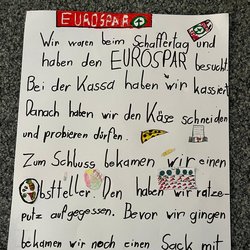 EUROSPAR
Wir waren beim Schaffertag und
haben den EUROSPAR besucht.
Bei der Kassa haben wir kassiert.
Danach haben wir den Käse schneiden
und probieren dürfen.
Zum Schluss bekamen wir einen
Obstteller. Den haben wir ratze-
putz aufgegessen. Bevor wir gingen
bekamen wir noch einen Sack mit